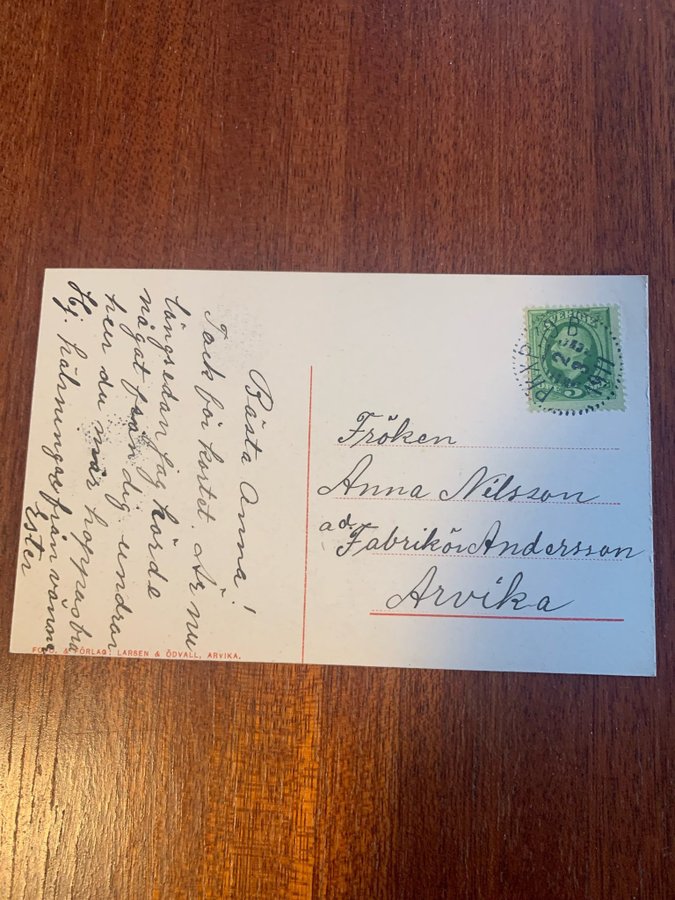 Bästa Anna!
Tack för kortet. Är nu
längsedan jag hörde
något från dig undrar
hur du mår hoppas bra
Hj. hälsningar från vännen
Ester
Fröken
Anna Nilsson
ad. Fabrikör Andersson
Arvika
SVERIGE
23
FOTO. & FÖRLAG: LARSEN & ÖDVALL, ARVIKA.